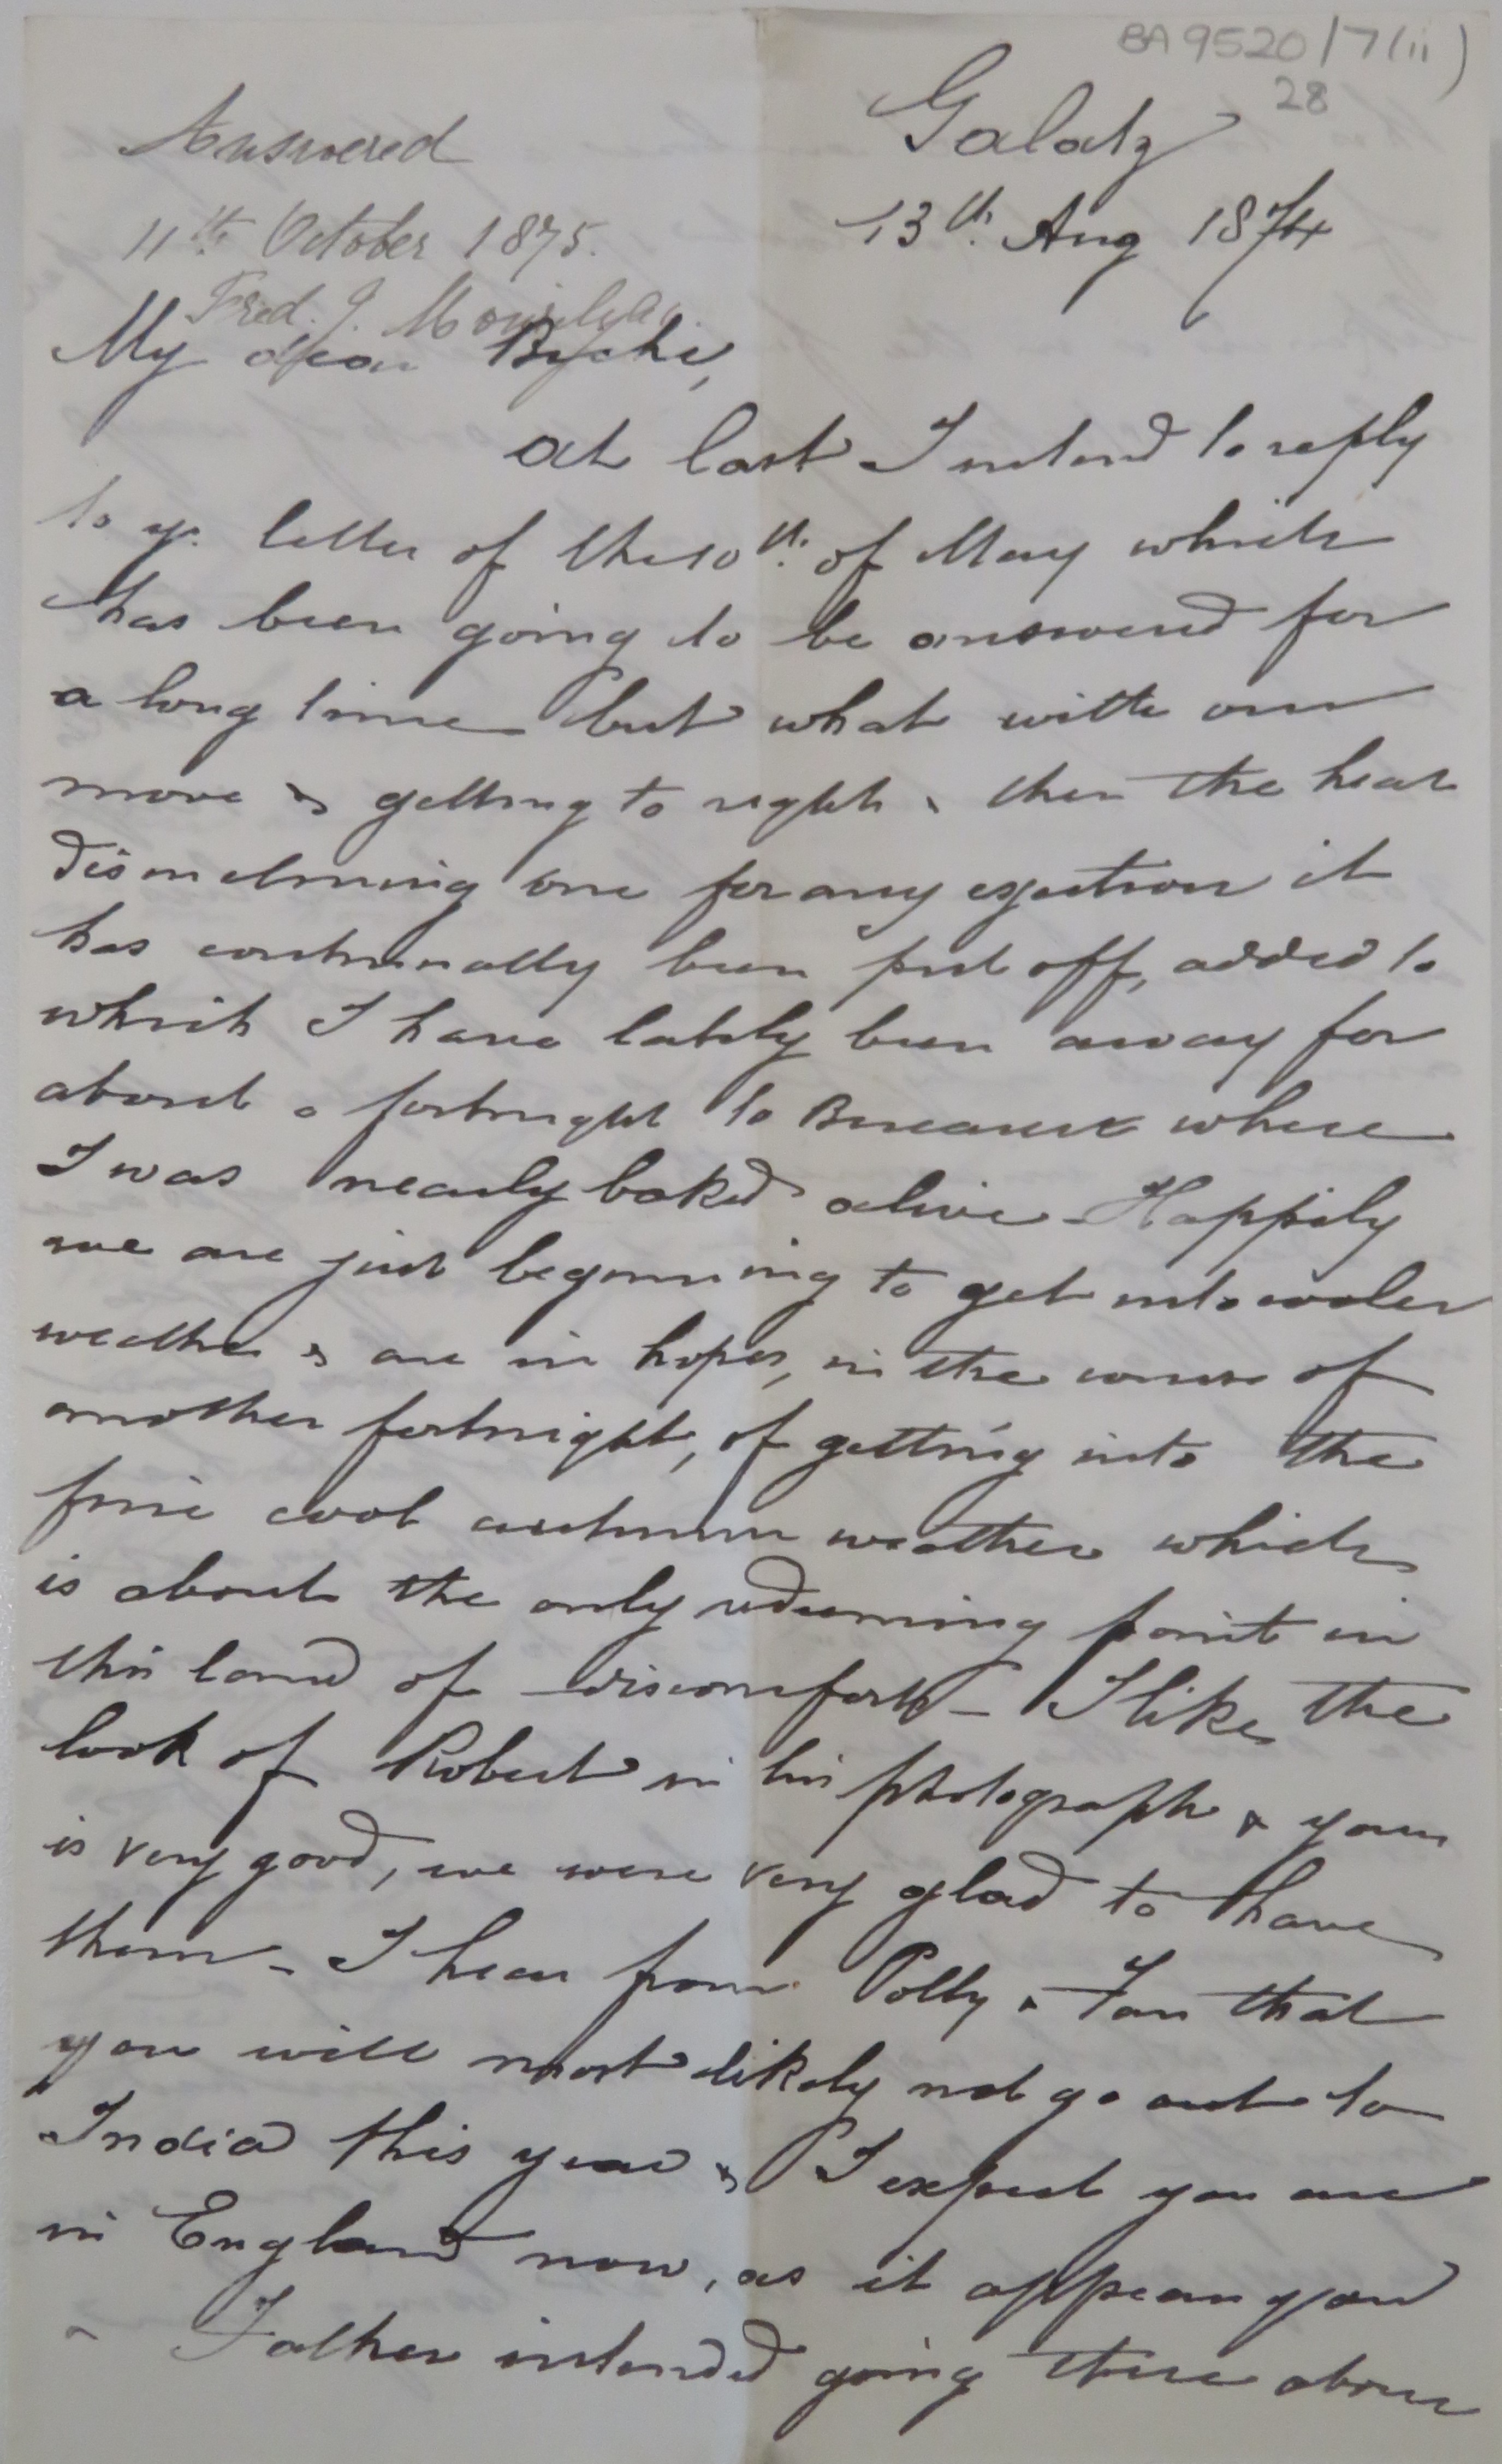 BA 9520/7(ii)
28
Galatz
13th. Aug 1874
Answered
11th October 1875.
Fred. J.
My dear
at last I intend to reply
to yr. letter of the 10th. of May which
has been going to be answered for
a long time but what with our
move & getting to rights & then the heat
disinclining one for any exertion it
has continually been put off, added to
which I have lately been away for
about a fortnight to Bucarest where
I was nearly baked alive - Happily
we are just beginning to get into cooler
weather & are in hopes, in the course of
another fortnight, of getting into the
fine cool autumn weather which
is about the only redeeming point in
this land of discomfort - I like the
look of Robert in his photograph & yours
is very good, we were very glad to have
them - I hear from Polly & Fan that
you will most likely not go out to
India this year & I expect you are
in England now, as it appears you
& Father intended going there about